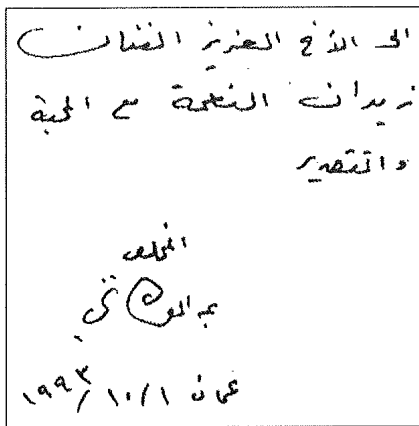 الى الأخ العزيز الفنان
زيدان النعمة مع المحبة
والتقدير
المخلص
عمان ١٩٩٣/١٠/١